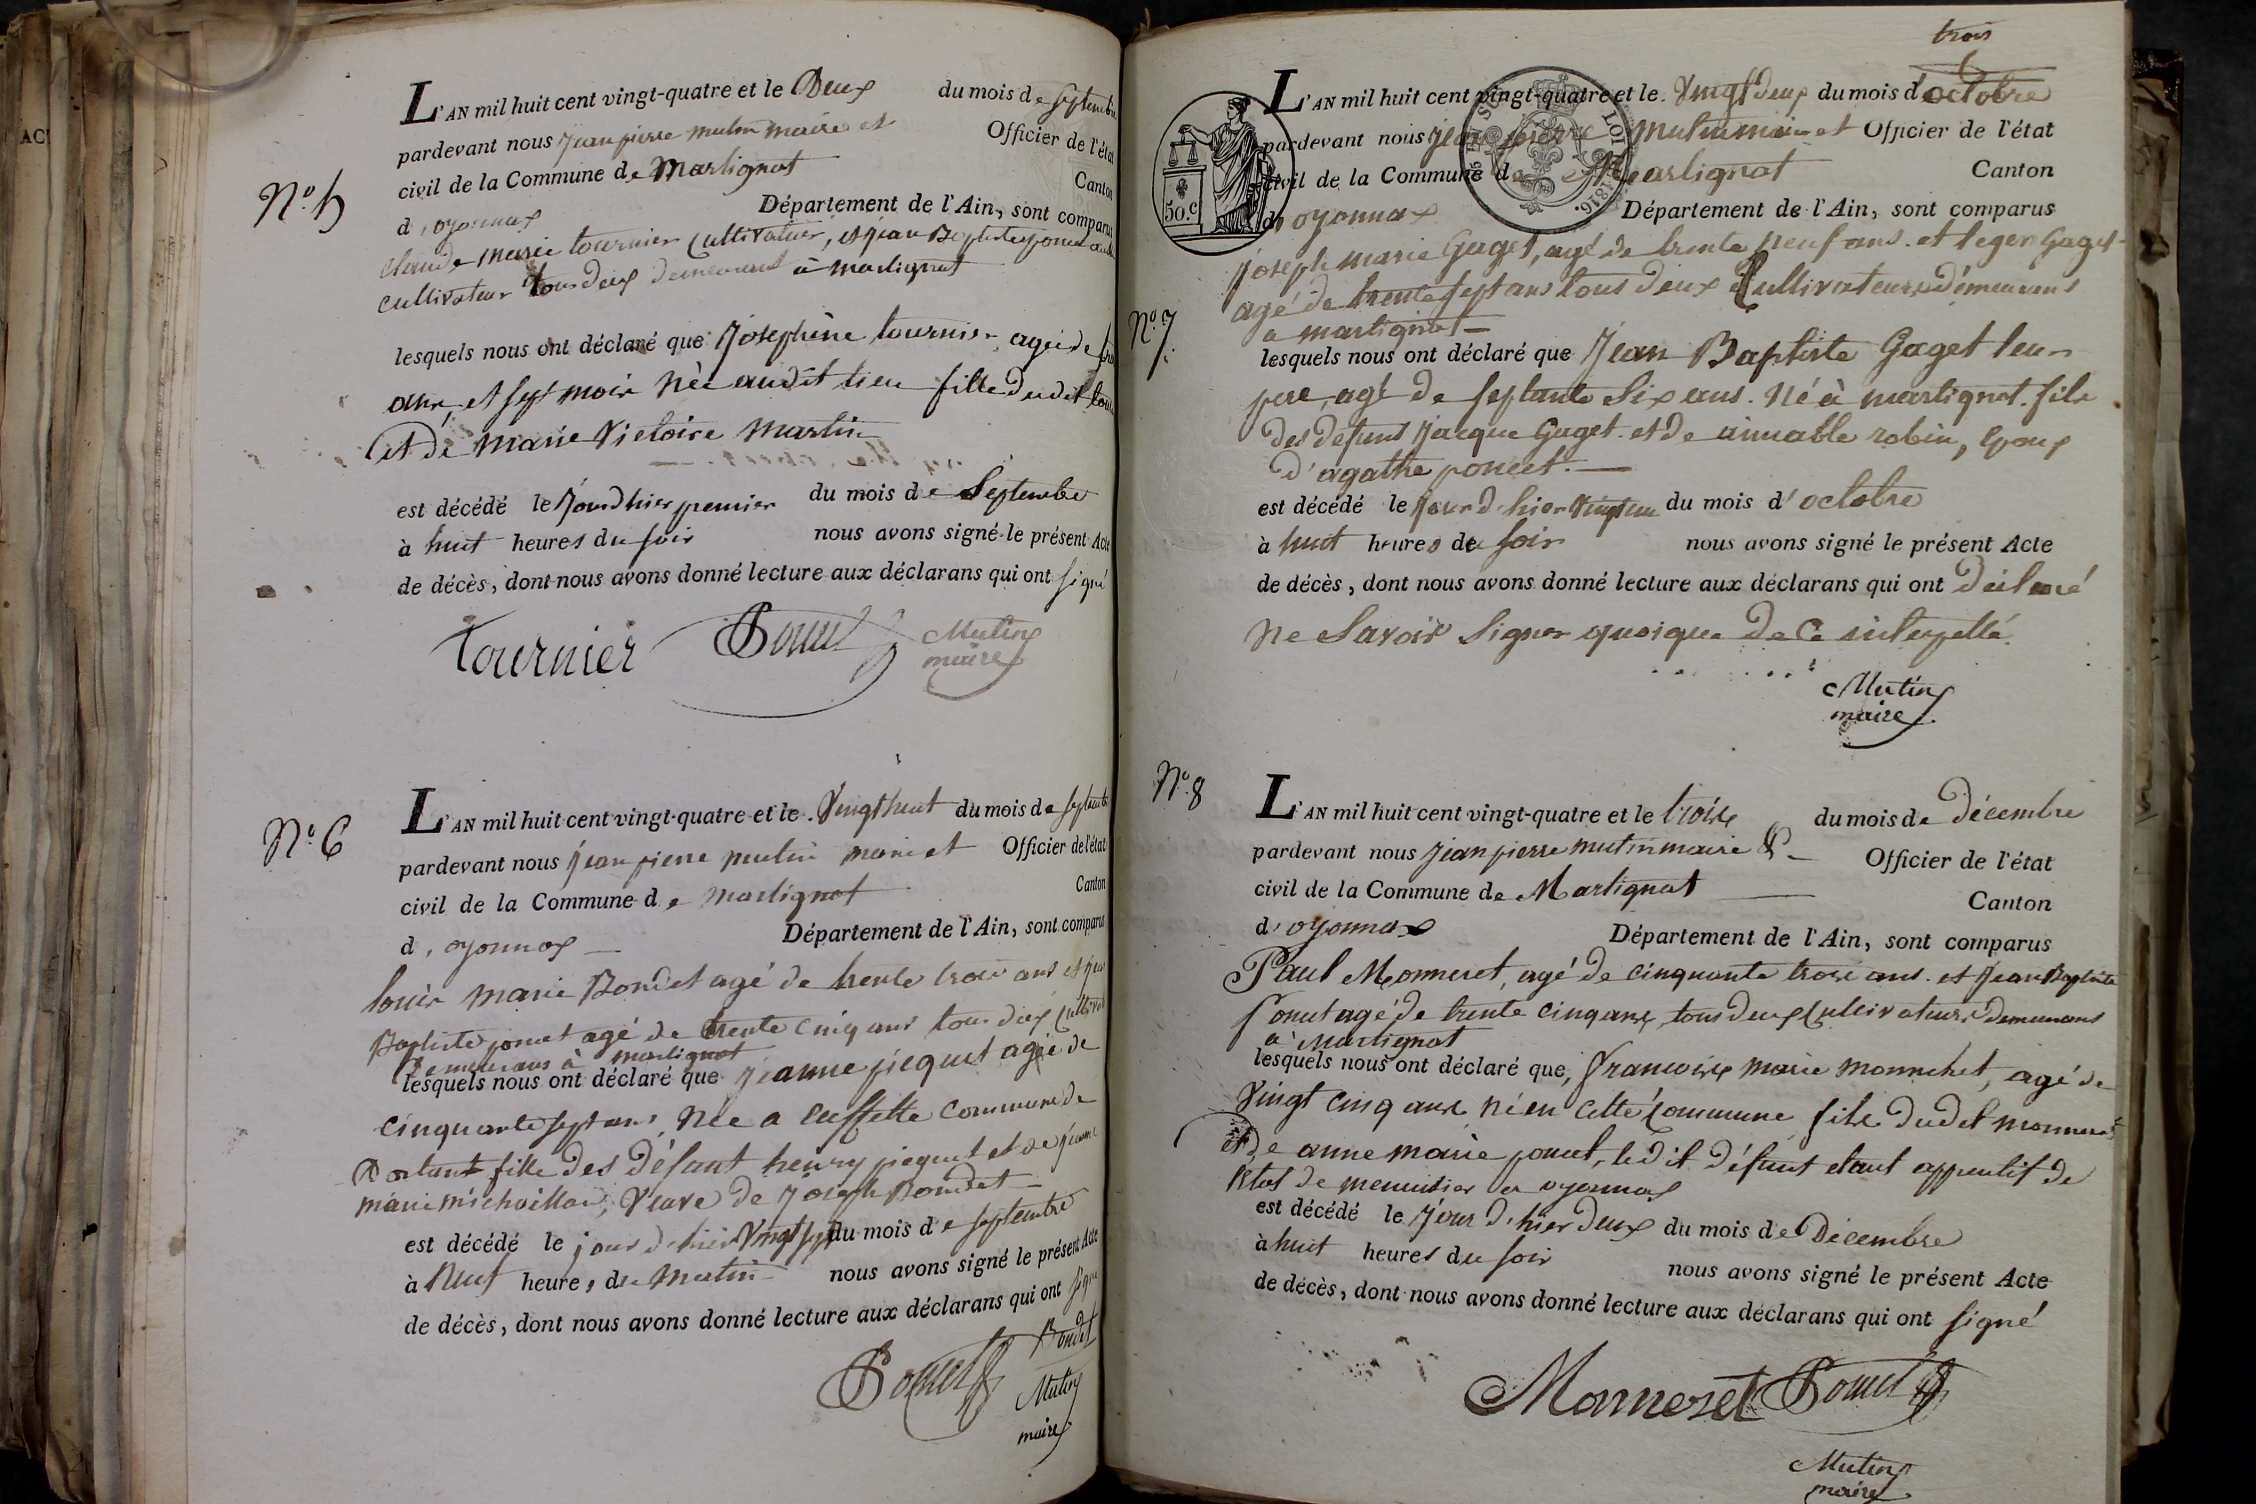 N.o 5
L'AN mil huit cent vingt-quatre et le Deux du mois de septembre
pardevant nous jean pierre mutin maire et Officier de l'état
civil de la Commune de Martignat Canton
d'oyonnax Département de l'Ain, sont comparus
claude marie tournier cultivateur, et jean Baptiste poncet aussi
cultivateur tous deux demeurant à martignat
lesquels nous ont déclaré que josephine tournier agée de
ans, et sept mois née audit lieu fille dudit
et de marie Victoire Martin
est décédé le jourd'hier premier du mois de Septembre
à huit heures du soir nous avons signé le présent Acte
de décès, dont nous avons donné lecture aux déclarans qui ont signé
Tournier Poncet Mutin
maire
N.o 6
L'AN mil huit cent vingt-quatre et le Vingt huit du mois de septembre
pardevant nous jean pierre mutin maire et Officier de l'état
civil de la Commune de martignat Canton
d'oyonnax Département de l'Ain, sont comparus
louis marie Bondet agé de trente trois ans et jean
Baptiste poncet agé de trente cinq ans tous deux cultivat
demeurans à martignat
lesquels nous ont déclaré que jeanne picquet agée de
cinquante sept ans, née a commune de
fille des défunt henry picquet et de jeanne
marie michaillard, Veuve de joseph Bondet
est décédé le jour d'hier Vingt sept du mois de septembre
à Neuf heures du matin nous avons signé le présent Acte
de décès, dont nous avons donné lecture aux déclarans qui ont signé
Bondet
Poncet Mutin
maire
trois
L'AN mil huit cent vingt-quatre et le Vingt deux du mois d'octobre
pardevant nous jean pierre Mutin maire et Officier de l'état
civil de la Commune de Martignat Canton
d'oyonnax Département de l'Ain, sont comparus
50.c
LOI 1816.
joseph marie Gaget, agé de trente neuf ans. et leger Gaget
agé de trente sept ans tous deux Cultivateurs demeurans
a martignat
N.o 7
lesquels nous ont déclaré que Jean Baptiste Gaget leur
pere, agé de septante six ans. Né à martignat. fils
des defunts jacque Gaget. et de aimable robin, Epoux
d'agathe poncet.
est décédé le jour d'hier vingt un du mois d'octobre
à huit heures du soir nous avons signé le présent Acte
de décès, dont nous avons donné lecture aux déclarans qui ont déclaré
ne Savoir Signer quoique de ce interpellé.
Mutin
maire
N.o 8
L'AN mil huit cent vingt-quatre et le trois du mois de Décembre
pardevant nous jean pierre mutin maire & Officier de l'état
civil de la Commune de Martignat Canton
d'oyonnax Département de l'Ain, sont comparus
Paul Monneret, agé de cinquante trois ans. et jean Baptiste
Poncet agé de trente cinq ans, tous deux cultivateurs demeurans
à Martignat
lesquels nous ont déclaré que, francois marie monneret, agé de
Vingt cinq ans né en cette Commune fils dudit monneret
et de anne marie poncet, ledit défunt etant apprentif de
letat de menuisier a oyonnax
est décédé le jour d'hier deux du mois de Décembre
à huit heures du soir nous avons signé le présent Acte
de décès, dont nous avons donné lecture aux déclarans qui ont signé
Monneret Poncet
Mutin
maire